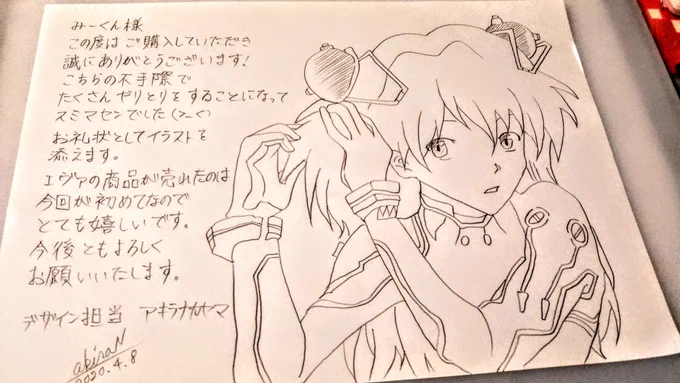 みーくん様
この度は ご購入していただき
誠にありがとうございます!
こちらの不手際で
たくさんやりとりをすることになって
スミマセンでした(>-<)
お礼状としてイラストを
添えます。
エヴァの商品が売れたのは
今回が初めてなので
とても嬉しいです。
今後ともよろしく
お願いいたします。
デザイン担当 アキラナカヤマ
akiraN
2020.4.8